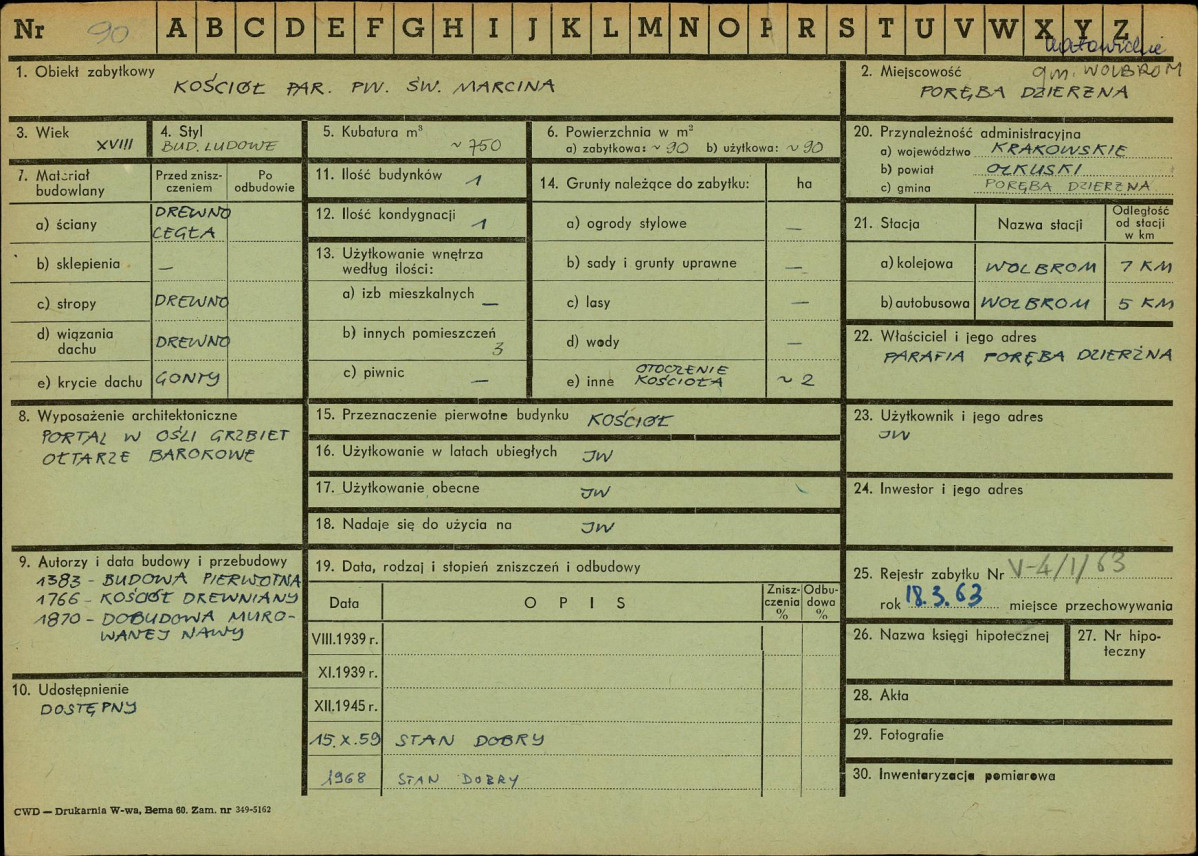 Nr 90 A B C D E F G H I J K L M N O P R S T U V W X Y Z
katowickie
1. Obiekt zabytkowy
KOŚCIÓŁ PAR. PW. ŚW. MARCINA
2. Miejscowość gm. WOLBROM
PORĘBA DZIERŻNA
3. Wiek
XVIII
4. Styl
BUD. LUDOWE
5. Kubatura m³
~ 750
6. Powierzchnia w m²
a) zabytkowa: ~ 90 b) użytkowa: ~ 90
7. Materiał budowlany
Przed zniszczeniem
Po odbudowie
a) ściany DREWNO CEGŁA
b) sklepienia —
c) stropy DREWNO
d) wiązania dachu DREWNO
e) krycie dachu GONTY
8. Wyposażenie architektoniczne
PORTAL W OŚLI GRZBIET
OŁTARZE BAROKOWE
9. Autorzy i data budowy i przebudowy
1383 - BUDOWA PIERWOTNA
1766 - KOŚCIÓŁ DREWNIANY
1870 - DOBUDOWA MURO-
WANEJ NAWY
10. Udostępnienie
DOSTĘPNY
11. Ilość budynków 1
12. Ilość kondygnacji 1
13. Użytkowanie wnętrza
według ilości:
a) izb mieszkalnych —
b) innych pomieszczeń
3
c) piwnic —
14. Grunty należące do zabytku: ha
a) ogrody stylowe —
b) sady i grunty uprawne —
c) lasy —
d) wody —
e) inne OTOCZENIE KOŚCIOŁA ~ 2
15. Przeznaczenie pierwotne budynku KOŚCIÓŁ
16. Użytkowanie w latach ubiegłych JW
17. Użytkowanie obecne JW
18. Nadaje się do użycia na JW
19. Data, rodzaj i stopień zniszczeń i odbudowy
Data OPIS Zniszczenia % Odbudowa %
VIII.1939 r.
XI.1939 r.
XII.1945 r.
15.X.59 STAN DOBRY
1968 STAN DOBRY
20. Przynależność administracyjna
a) województwo KRAKOWSKIE
b) powiat OLKUSKI
c) gmina PORĘBA DZIERŻNA
21. Stacja Nazwa stacji Odległość od stacji w km
a) kolejowa WOLBROM 7 KM
b) autobusowa WOLBROM 5 KM
22. Właściciel i jego adres
PARAFIA PORĘBA DZIERŻNA
23. Użytkownik i jego adres
JW
24. Inwestor i jego adres
25. Rejestr zabytku Nr V-4/1/63
rok 18.3.63 miejsce przechowywania
26. Nazwa księgi hipotecznej
27. Nr hipo-
teczny
28. Akta
29. Fotografie
30. Inwentaryzacja pomiarowa
CWD — Drukarnia W-wa, Bema 60. Zam. nr 349-5162